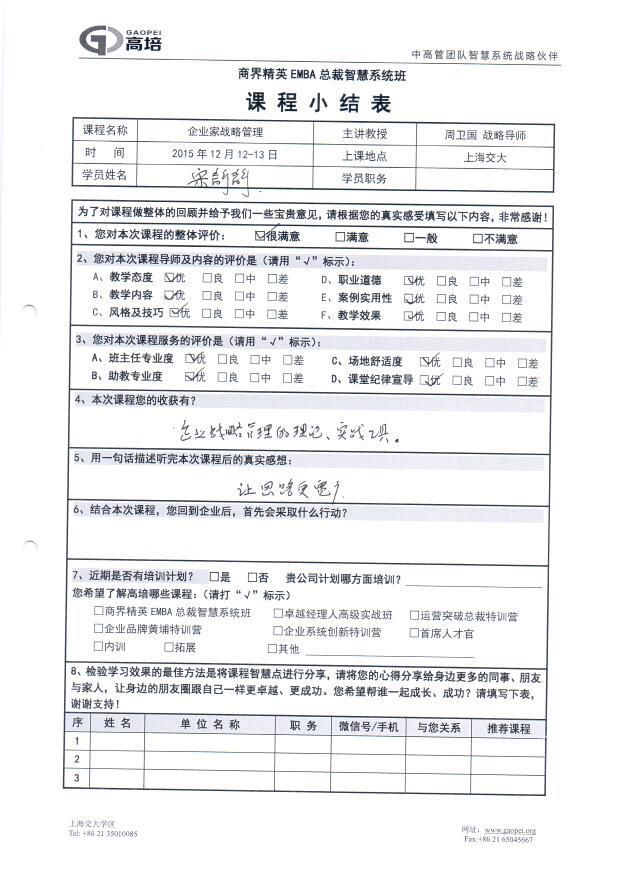 GAOPEI
高培
中高管团队智慧系统战略伙伴
商界精英 EMBA 总裁智慧系统班
课程小结表
课程名称 企业家战略管理 主讲教授 周卫国 战略导师
时 间 2015 年 12 月 12-13 日 上课地点 上海交大
学员姓名 学员职务
为了对课程做整体的回顾并给予我们一些宝贵意见，请根据您的真实感受填写以下内容，非常感谢！
1、您对本次课程的整体评价： ☑很满意 □满意 □一般 □不满意
2、您对本次课程导师及内容的评价是（请用“√”标示）：
A、教学态度 ☑优 □良 □中 □差 D、职业道德 ☑优 □良 □中 □差
B、教学内容 ☑优 □良 □中 □差 E、案例实用性 ☑优 □良 □中 □差
C、风格及技巧 ☑优 □良 □中 □差 F、教学效果 ☑优 □良 □中 □差
3、您对本次课程服务的评价是（请用“√”标示）：
A、班主任专业度 ☑优 □良 □中 □差 C、场地舒适度 ☑优 □良 □中 □差
B、助教专业度 ☑优 □良 □中 □差 D、课堂纪律宣导 ☑优 □良 □中 □差
4、本次课程您的收获有？
企业战略管理的理论、实战工具。
5、用一句话描述听完本次课程后的真实感想：
让思路更宽广
6、结合本次课程，您回到企业后，首先会采取什么行动？
7、近期是否有培训计划？ □是 □否 贵公司计划哪方面培训？
您希望了解高培哪些课程：（请打“√”标示）
□商界精英 EMBA 总裁智慧系统班 □卓越经理人高级实战班 □运营突破总裁特训营
□企业品牌黄埔特训营 □企业系统创新特训营 □首席人才官
□内训 □拓展 □其他
8、检验学习效果的最佳方法是将课程智慧点进行分享，请将您的心得分享给身边更多的同事、朋友
与家人，让身边的朋友圈跟自己一样更卓越、更成功。您希望帮谁一起成长、成功？请填写下表，
谢谢支持！
序 姓 名 单 位 名 称 职 务 微信号/手机 与您关系 推荐课程
1
2
3
上海交大学区
Tel: +86 21 35010085
网址：www.gaopei.org
Fax:+86 21 65045667